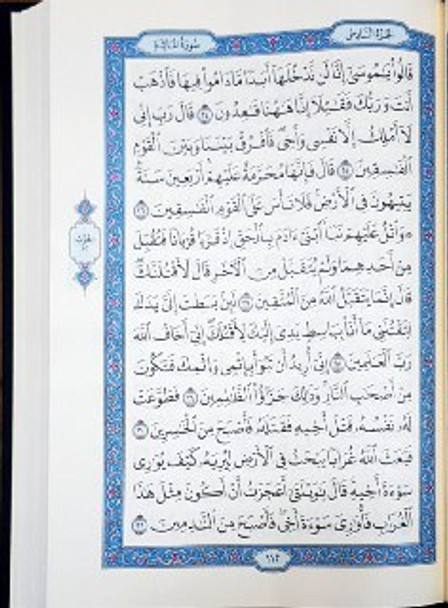 الجزء السادس
سورة المائدة
قَالُوا۟ يَٰمُوسَىٰٓ إِنَّا لَن نَّدْخُلَهَآ أَبَدًا مَّا دَامُوا۟ فِيهَا فَٱذْهَبْ
أَنتَ وَرَبُّكَ فَقَٰتِلَآ إِنَّا هَٰهُنَا قَٰعِدُونَ ٢٤ قَالَ رَبِّ إِنِّى
لَآ أَمْلِكُ إِلَّا نَفْسِى وَأَخِى فَٱفْرُقْ بَيْنَنَا وَبَيْنَ ٱلْقَوْمِ
ٱلْفَٰسِقِينَ ٢٥ قَالَ فَإِنَّهَا مُحَرَّمَةٌ عَلَيْهِمْ أَرْبَعِينَ سَنَةً
يَتِيهُونَ فِى ٱلْأَرْضِ فَلَا تَأْسَ عَلَى ٱلْقَوْمِ ٱلْفَٰسِقِينَ ٢٦
۞ وَٱتْلُ عَلَيْهِمْ نَبَأَ ٱبْنَىْ ءَادَمَ بِٱلْحَقِّ إِذْ قَرَّبَا قُرْبَانًا فَتُقُبِّلَ
مِنْ أَحَدِهِمَا وَلَمْ يُتَقَبَّلْ مِنَ ٱلْءَاخَرِ قَالَ لَأَقْتُلَنَّكَ
قَالَ إِنَّمَا يَتَقَبَّلُ ٱللَّهُ مِنَ ٱلْمُتَّقِينَ ٢٧ لَئِنۢ بَسَطتَ إِلَىَّ يَدَكَ
لِتَقْتُلَنِى مَآ أَنَا۠ بِبَاسِطٍ يَدِىَ إِلَيْكَ لِأَقْتُلَكَ إِنِّىٓ أَخَافُ ٱللَّهَ
رَبَّ ٱلْعَٰلَمِينَ ٢٨ إِنِّىٓ أُرِيدُ أَن تَبُوٓأَ بِإِثْمِى وَإِثْمِكَ فَتَكُونَ
مِنْ أَصْحَٰبِ ٱلنَّارِ وَذَٰلِكَ جَزَٰٓؤُا۟ ٱلظَّٰلِمِينَ ٢٩ فَطَوَّعَتْ
لَهُۥ نَفْسُهُۥ قَتْلَ أَخِيهِ فَقَتَلَهُۥ فَأَصْبَحَ مِنَ ٱلْخَٰسِرِينَ ٣٠
فَبَعَثَ ٱللَّهُ غُرَابًا يَبْحَثُ فِى ٱلْأَرْضِ لِيُرِيَهُۥ كَيْفَ يُوَٰرِى
سَوْءَةَ أَخِيهِ قَالَ يَٰوَيْلَتَىٰٓ أَعَجَزْتُ أَنْ أَكُونَ مِثْلَ هَٰذَا
ٱلْغُرَابِ فَأُوَٰرِىَ سَوْءَةَ أَخِى فَأَصْبَحَ مِنَ ٱلنَّٰدِمِينَ ٣١
١١٢